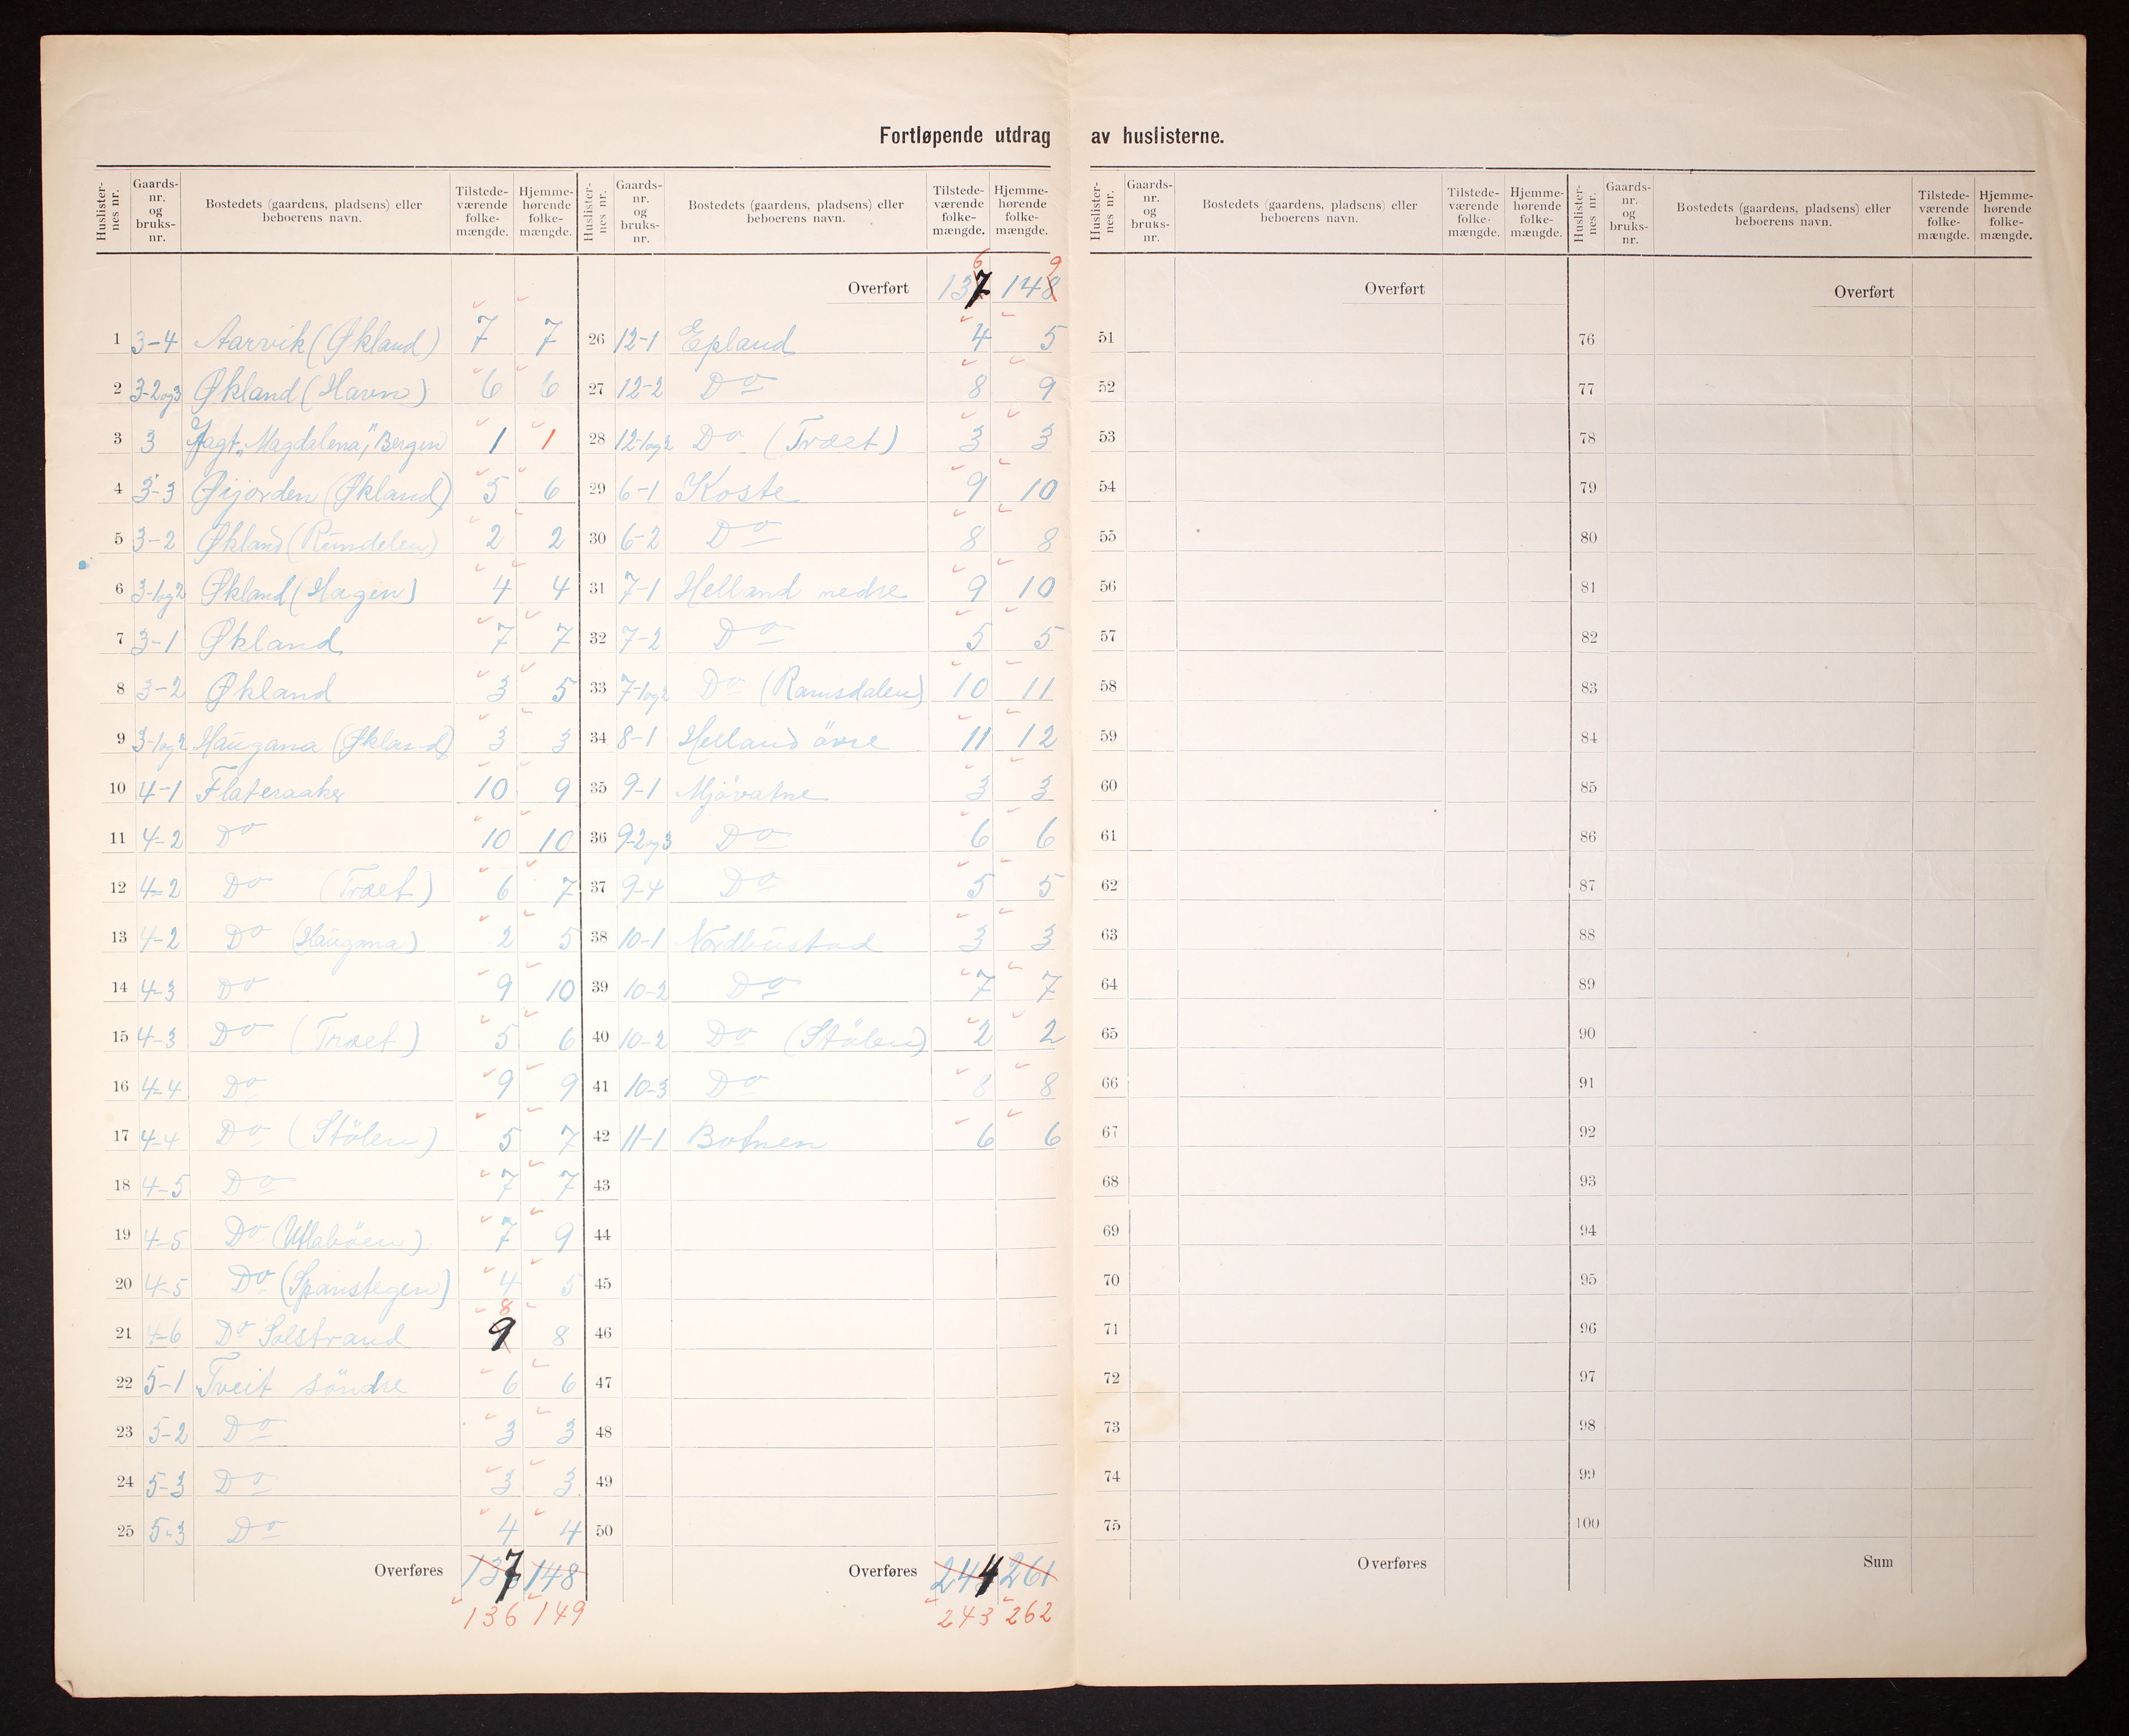 Fortløpende utdrag av huslisterne.
Huslister-nes nr. Gaards-nr. og bruks-nr. Bostedets (gaardens, pladsens) eller beboerens navn. Tilstede-værende folke-mængde. Hjemme-hørende folke-mængde.
1 3-4 Aarvik (Økland) 7 7
2 3-2og3 Økland (Havn) 6 6
3 3 Jagt „Magdalena" Bergen 1 1
4 3-3 Øijorden (Økland) 5 6
5 3-2 Økland (Rundelen) 2 2
6 3-1og2 Økland (Hagen) 4 4
7 3-1 Økland 7 7
8 3-2 Økland 3 5
9 3-1og2 Haugana (Økland) 3 3
10 4-1 Flateraaker 10 9
11 4-2 Do 10 10
12 4-2 Do (Træet) 6 7
13 4-2 Do (Haugana) 2 5
14 4-3 Do 9 10
15 4-3 Do (Træet) 5 6
16 4-4 Do 9 9
17 4-4 Do (Stölen) 5 7
18 4-5 Do 7 7
19 4-5 Do 7 9
20 4-5 Do (Spanstegen) 4 5
8
21 4-6 Do Solstrand 9 8
22 5-1 Tveit söndre 6 6
23 5-2 Do 3 3
24 5-3 Do 3 3
25 5-3 Do 4 4
Overføres 137 148
136 149
Huslister-nes nr. Gaards-nr. og bruks-nr. Bostedets (gaardens, pladsens) eller beboerens navn. Tilstede-værende folke-mængde. Hjemme-hørende folke-mængde.
6 9
Overført 137 148
26 12-1 Epland 4 5
27 12-2 Do 8 9
28 12-1og2 Do (Træet) 3 3
29 6-1 Koste 9 10
30 6-2 Do 8 8
31 7-1 Helland nedre 9 10
32 7-2 Do 5 5
33 7-1og2 Do (Ramsdalen) 10 11
34 8-1 Helland övre 11 12
35 9-1 Mjövatne 3 3
36 9-2og3 Do 6 6
37 9-4 Do 5 5
38 10-1 Nordbustad 3 3
39 10-2 Do 7 7
40 10-2 Do (Stölen) 2 2
41 10-3 Do 8 8
42 11-1 Botnen 6 6
43
44
45
46
47
48
49
50
Overføres 244 261
243 262
Huslister-nes nr. Gaards-nr. og bruks-nr. Bostedets (gaardens, pladsens) eller beboerens navn. Tilstede-værende folke-mængde. Hjemme-hørende folke-mængde.
Overført
51
52
53
54
55
56
57
58
59
60
61
62
63
64
65
66
67
68
69
70
71
72
73
74
75
Overføres
Huslister-nes nr. Gaards-nr. og bruks-nr. Bostedets (gaardens, pladsens) eller beboerens navn. Tilstede-værende folke-mængde. Hjemme-hørende folke-mængde.
Overført
76
77
78
79
80
81
82
83
84
85
86
87
88
89
90
91
92
93
94
95
96
97
98
99
100
Sum